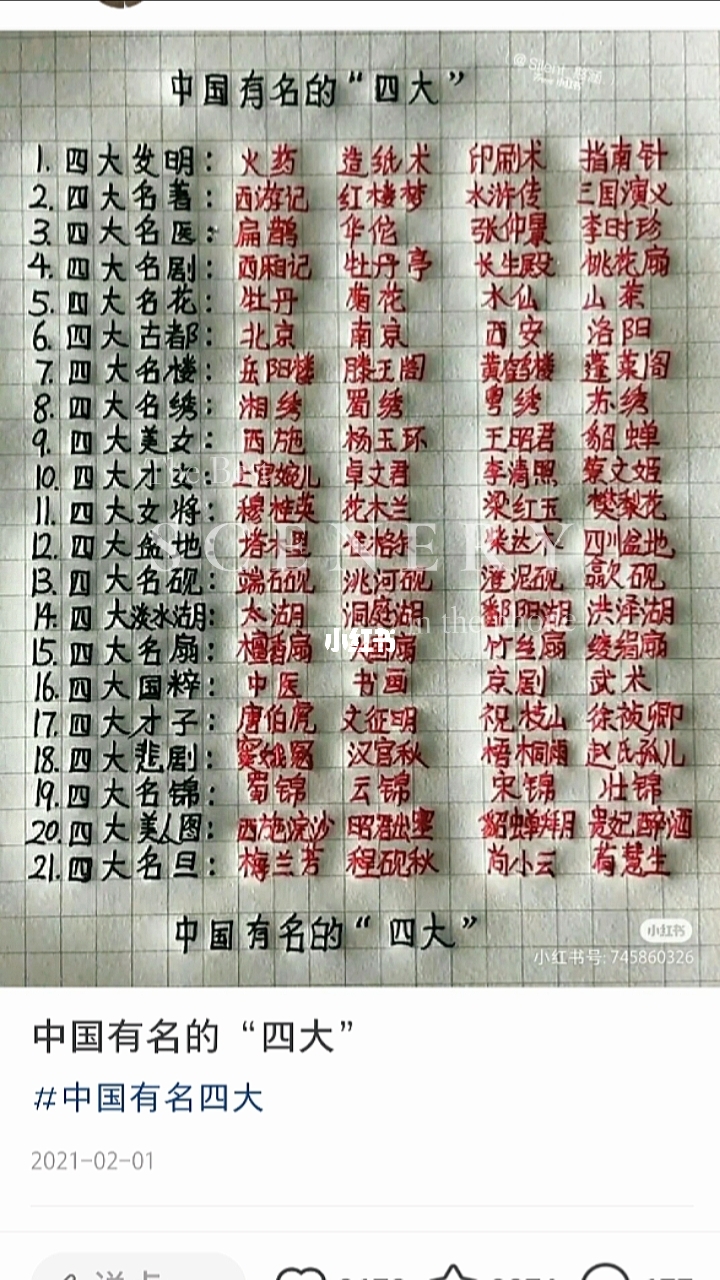 中国有名的“四大”
1. 四大发明: 火药 造纸术 印刷术 指南针
2. 四大名著: 西游记 红楼梦 水浒传 三国演义
3. 四大名医: 扁鹊 华佗 张仲景 李时珍
4. 四大名剧: 西厢记 牡丹亭 长生殿 桃花扇
5. 四大名花: 牡丹 菊花 水仙 山茶
6. 四大古都: 北京 南京 西安 洛阳
7. 四大名楼: 岳阳楼 滕王阁 黄鹤楼 蓬莱阁
8. 四大名绣: 湘绣 蜀绣 粤绣 苏绣
9. 四大美女: 西施 杨玉环 王昭君 貂蝉
10. 四大才女: 上官婉儿 卓文君 李清照 蔡文姬
11. 四大女将: 穆桂英 花木兰 梁红玉 樊梨花
12. 四大盆地: 塔木 柴达木 四川盆地
13. 四大名砚: 端石砚 洮河砚 澄泥砚 歙砚
14. 四大淡水湖: 太湖 洞庭湖 鄱阳湖 洪泽湖
15. 四大名扇: 檀香扇 扇 竹丝扇 绫绢扇
16. 四大国粹: 中医 书画 京剧 武术
17. 四大才子: 唐伯虎 文征明 祝枝山 徐祯卿
18. 四大悲剧: 窦娥冤 汉宫秋 梧桐雨 赵氏孤儿
19. 四大名锦: 蜀锦 云锦 宋锦 壮锦
20. 四大美人图: 西施浣沙 昭君出塞 貂蝉拜月 贵妃醉酒
21. 四大名旦: 梅兰芳 程砚秋 尚小云 荀慧生
SCENERY
in the
小红书
中国有名的“四大”
小红书
小红书号: 745860326
中国有名的“四大”
#中国有名四大
2021-02-01